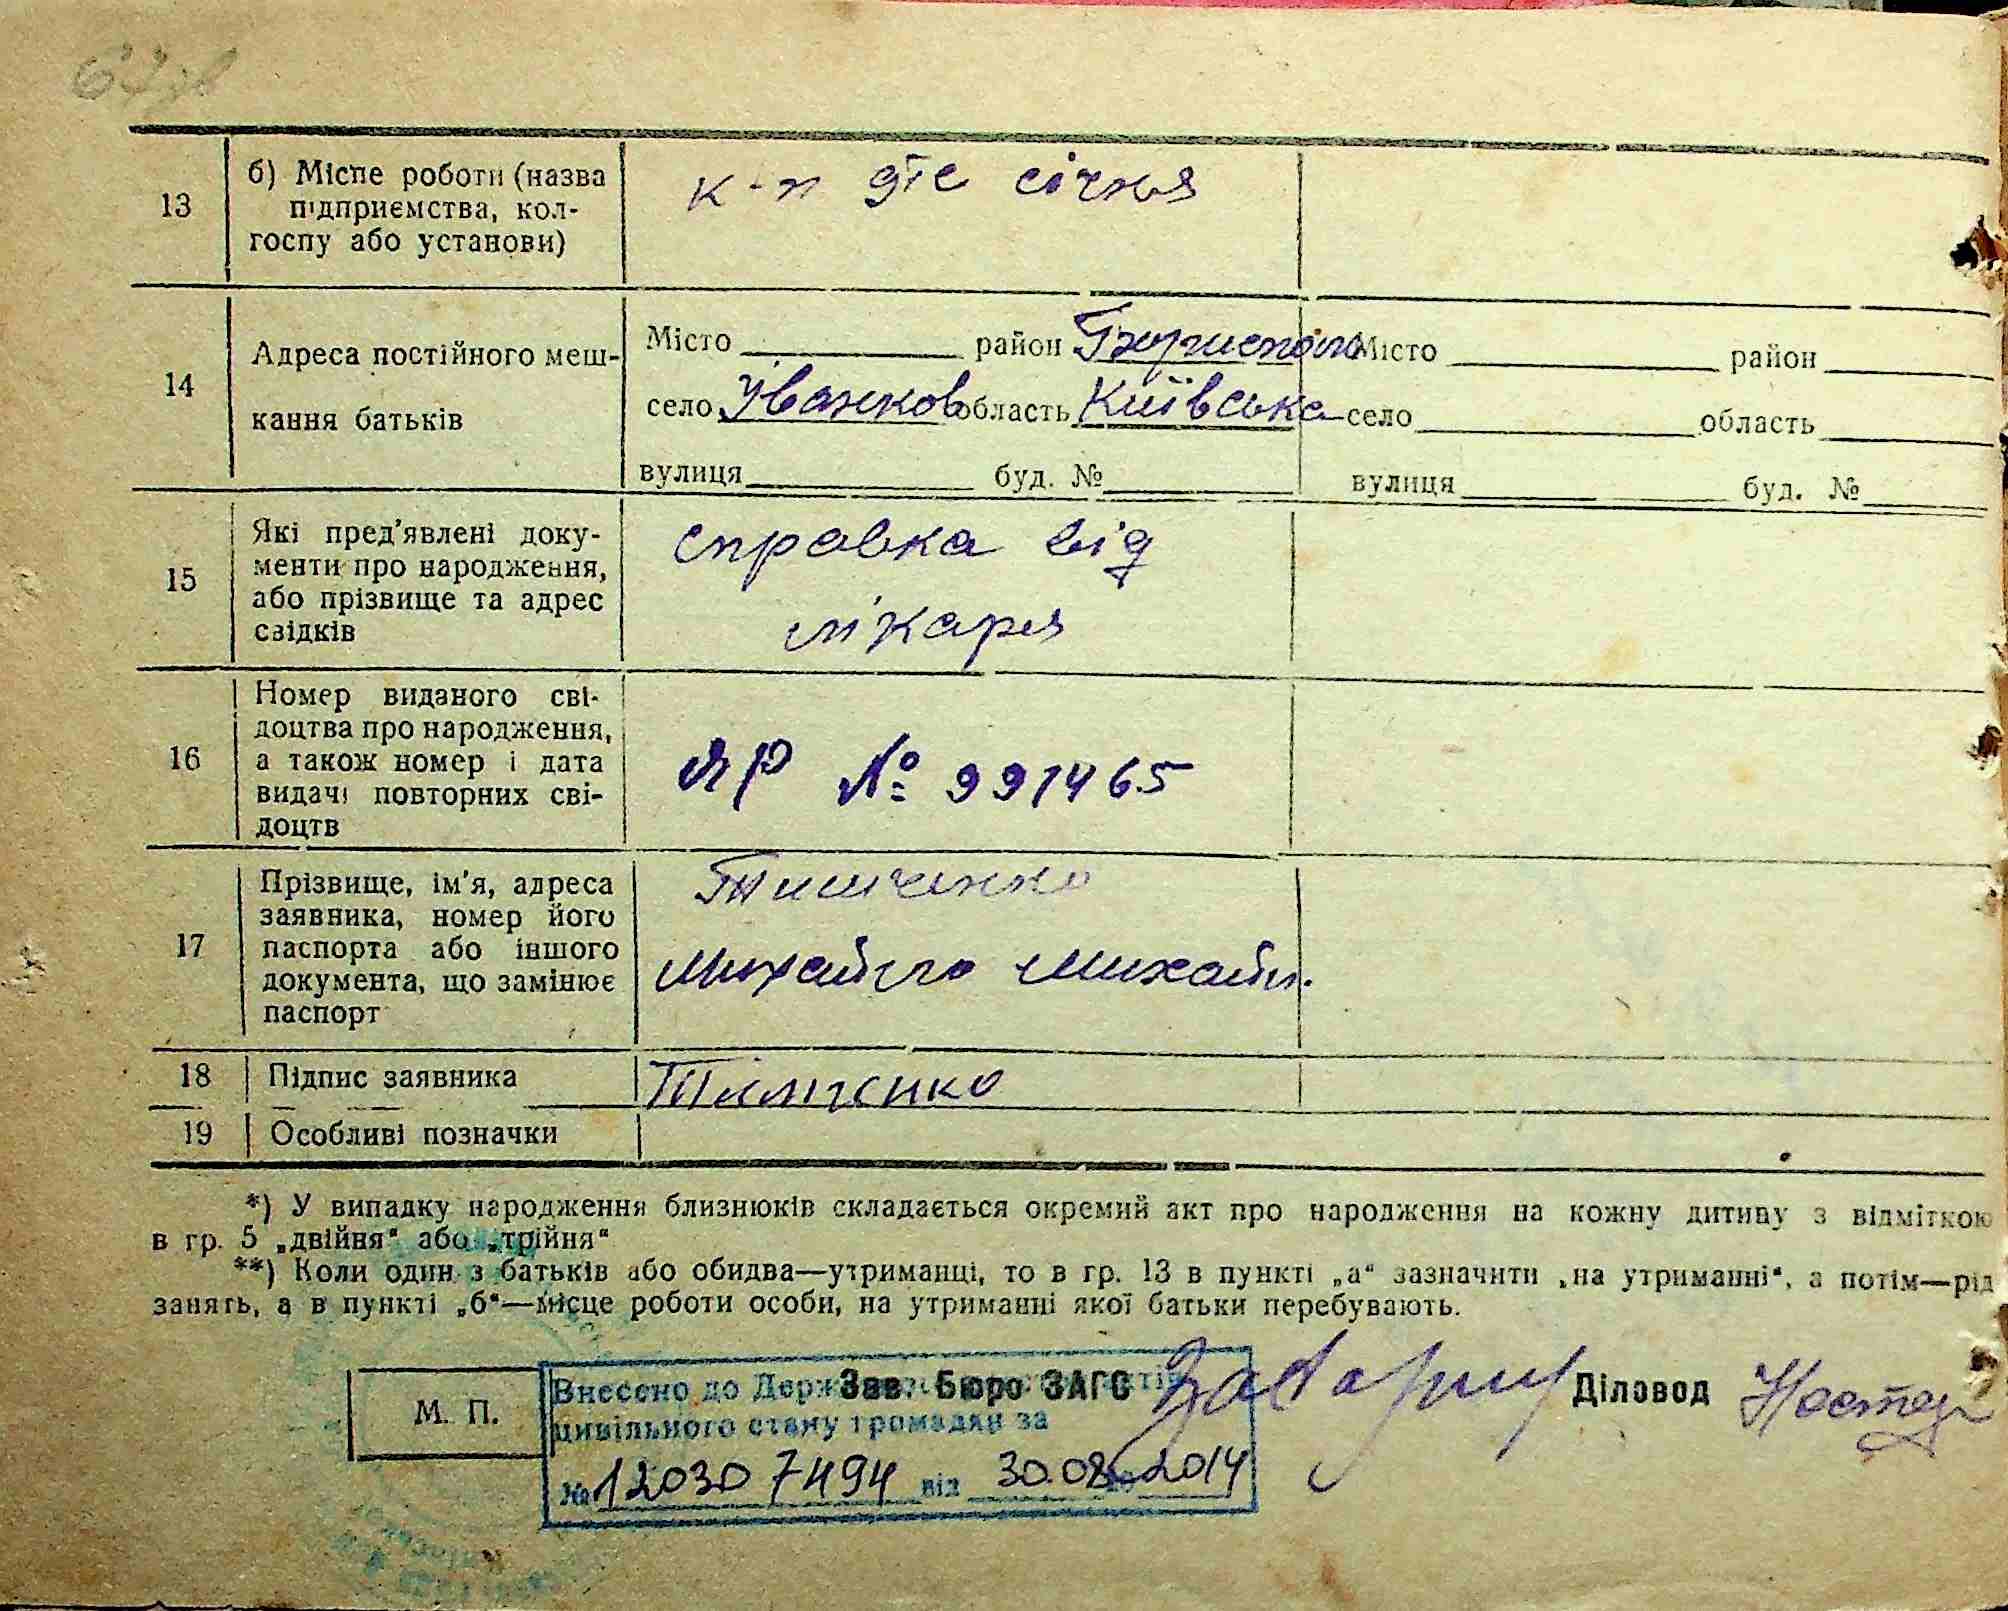 67зв
13
б) Місце роботи (назва
підприємства, кол-
госпу або установи)
к-п 9те січня
14
Адреса постійного меш-
кання батьків
Місто район Бориспол Місто район
село Іванков область Київська село область
вулиця буд. № вулиця буд. №
15
Які пред'явлені доку-
менти про народження,
або прізвище та адрес
свідків
справка від
лікаря
16
Номер виданого сві-
доцтва про народження,
а також номер і дата
видачі повторних сві-
доцтв
ЯР № 991465
17
Прізвище, ім'я, адреса
заявника, номер його
паспорта або іншого
документа, що замінює
паспорт
Тимченко
Михайло Михайл.
18
Підпис заявника
Тимченко
19
Особливі позначки
*) У випадку народження близнюків складається окремий акт про народження на кожну дитину з відміткою
в гр. 5 „двійня“ або „трійня“
**) Коли один з батьків або обидва—утриманці, то в гр. 13 в пункті „а“ зазначити „на утриманні“, а потім—рід
занять, а в пункті „б“—місце роботи особи, на утриманні якої батьки перебувають.
М. П.
Зав. Бюро ЗАГС
Діловод
Внесено до
цивільного стану громадян за
№ 12030 7494 від 30.08.2014